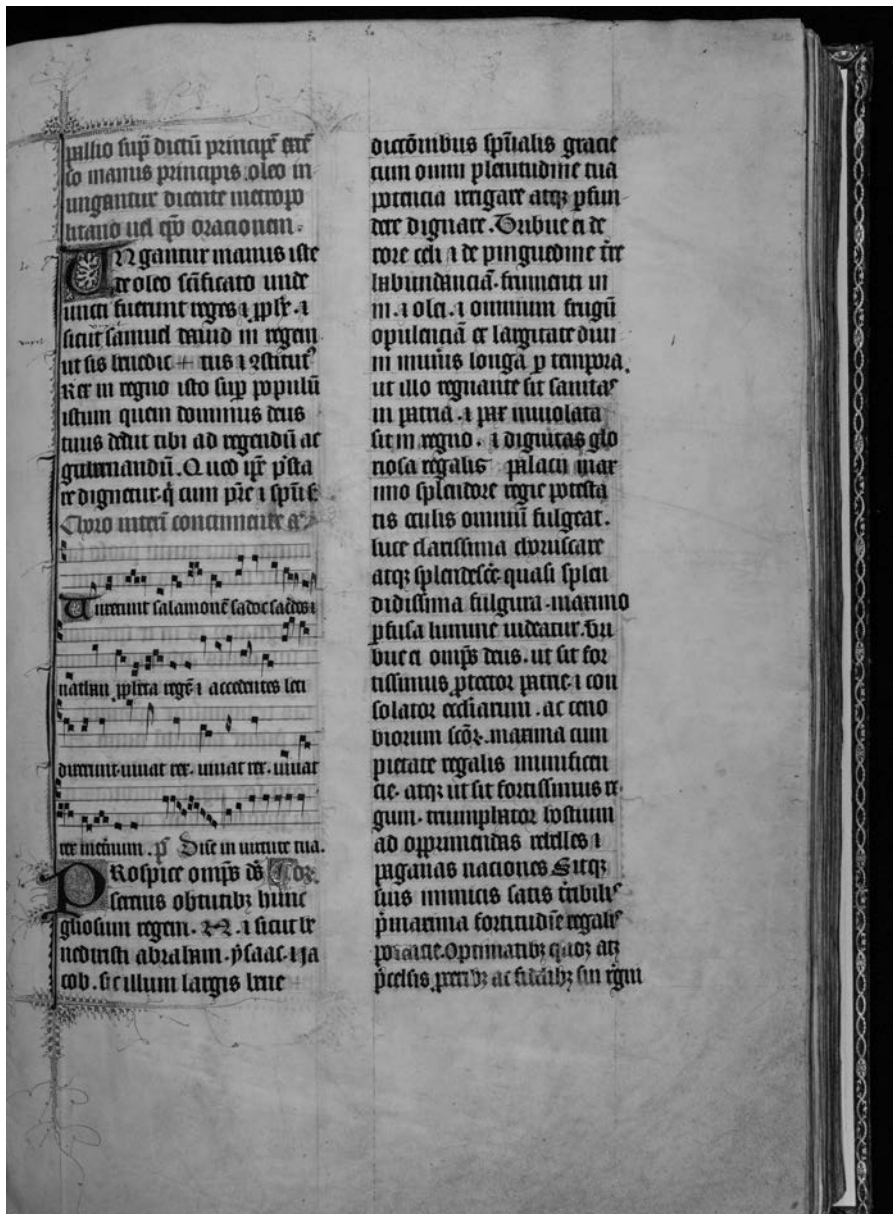 pallio sup̄ dictū principē
co manus principis oleo in
ungantur dicente metropo
litano uel ep̄o orationem.
Ungantur manus iste
de oleo sc̄ificato unde
uncti fuerunt reges ⁊ ꝓph̄e. ⁊
sicut samuel dauid in regem
ut sis benedic + tus ⁊ ꝯstitut᷒
Rex in regno isto sup̄ populū
istum quem dominus deus
tuus dedit tibi ad regendū ac
gubernandū. Quod ip̄e p̄sta
re dignetur. q̄ cum p̄re ⁊ sp̄ū s̄.
Choro interī concinnente an̄
Unxerunt salamonē sadoc sac̄dos ⁊
nathan ꝓpheta regē ⁊ accedentes leti
dixerunt. uiuat rex. uiuat rex. uiuat
rex in et̄num. p̄s Dn̄e in uirtute tua.
PRospice omp̄s ds̄
serenis obtutibꝫ hunc
gl̄iosum regem. N. ⁊ sicut be
nedixisti abraham. ysaac. ⁊ ja
cob. sic illum largis bene
dictōnibus sp̄ualis gracie
cum omni plenitudine tua
potencia irrigare atqꝫ ꝑfun
dere dignare. Tribue ei de
rore celi ⁊ de pinguedine t̄re
habundanciā. frumenti ui
ni. ⁊ olei. ⁊ omnium frugū
opulenciā ex largitate diui
ni mun̄is longa ꝑ tempora.
ut illo regnante sit sanitas
in patria. ⁊ pax inuiolata
sit in regno. ⁊ dignitas glo
riosa regalis palacii max
imo splendore regie potesta
tis oculis omniū fulgeat.
luce clarissima choruscare
atqꝫ splendesc̄e. quasi splen
didissima fulgura. maximo
ꝑfusa lumine uideatur. Tri
bue ei omp̄s deus. ut sit for
tissimus ꝓtector patrie. ⁊ con
solator eccl̄iarum. ac ceno
biorum sc̄oꝝ. maxima cum
pietate regalis munificen
cie. atqꝫ ut sit fortissimus re
gum. triumphator hostium
ad opprimendas rebelles ⁊
paganas naciones Sitqꝫ
suis inimicis satis t̄ribilis
p̄ maxima fortitudīe regalis
potencie. Optimatibꝫ quoqꝫ atqꝫ
p̄celsis ꝓceribꝫ ac fidelibꝫ sui regni